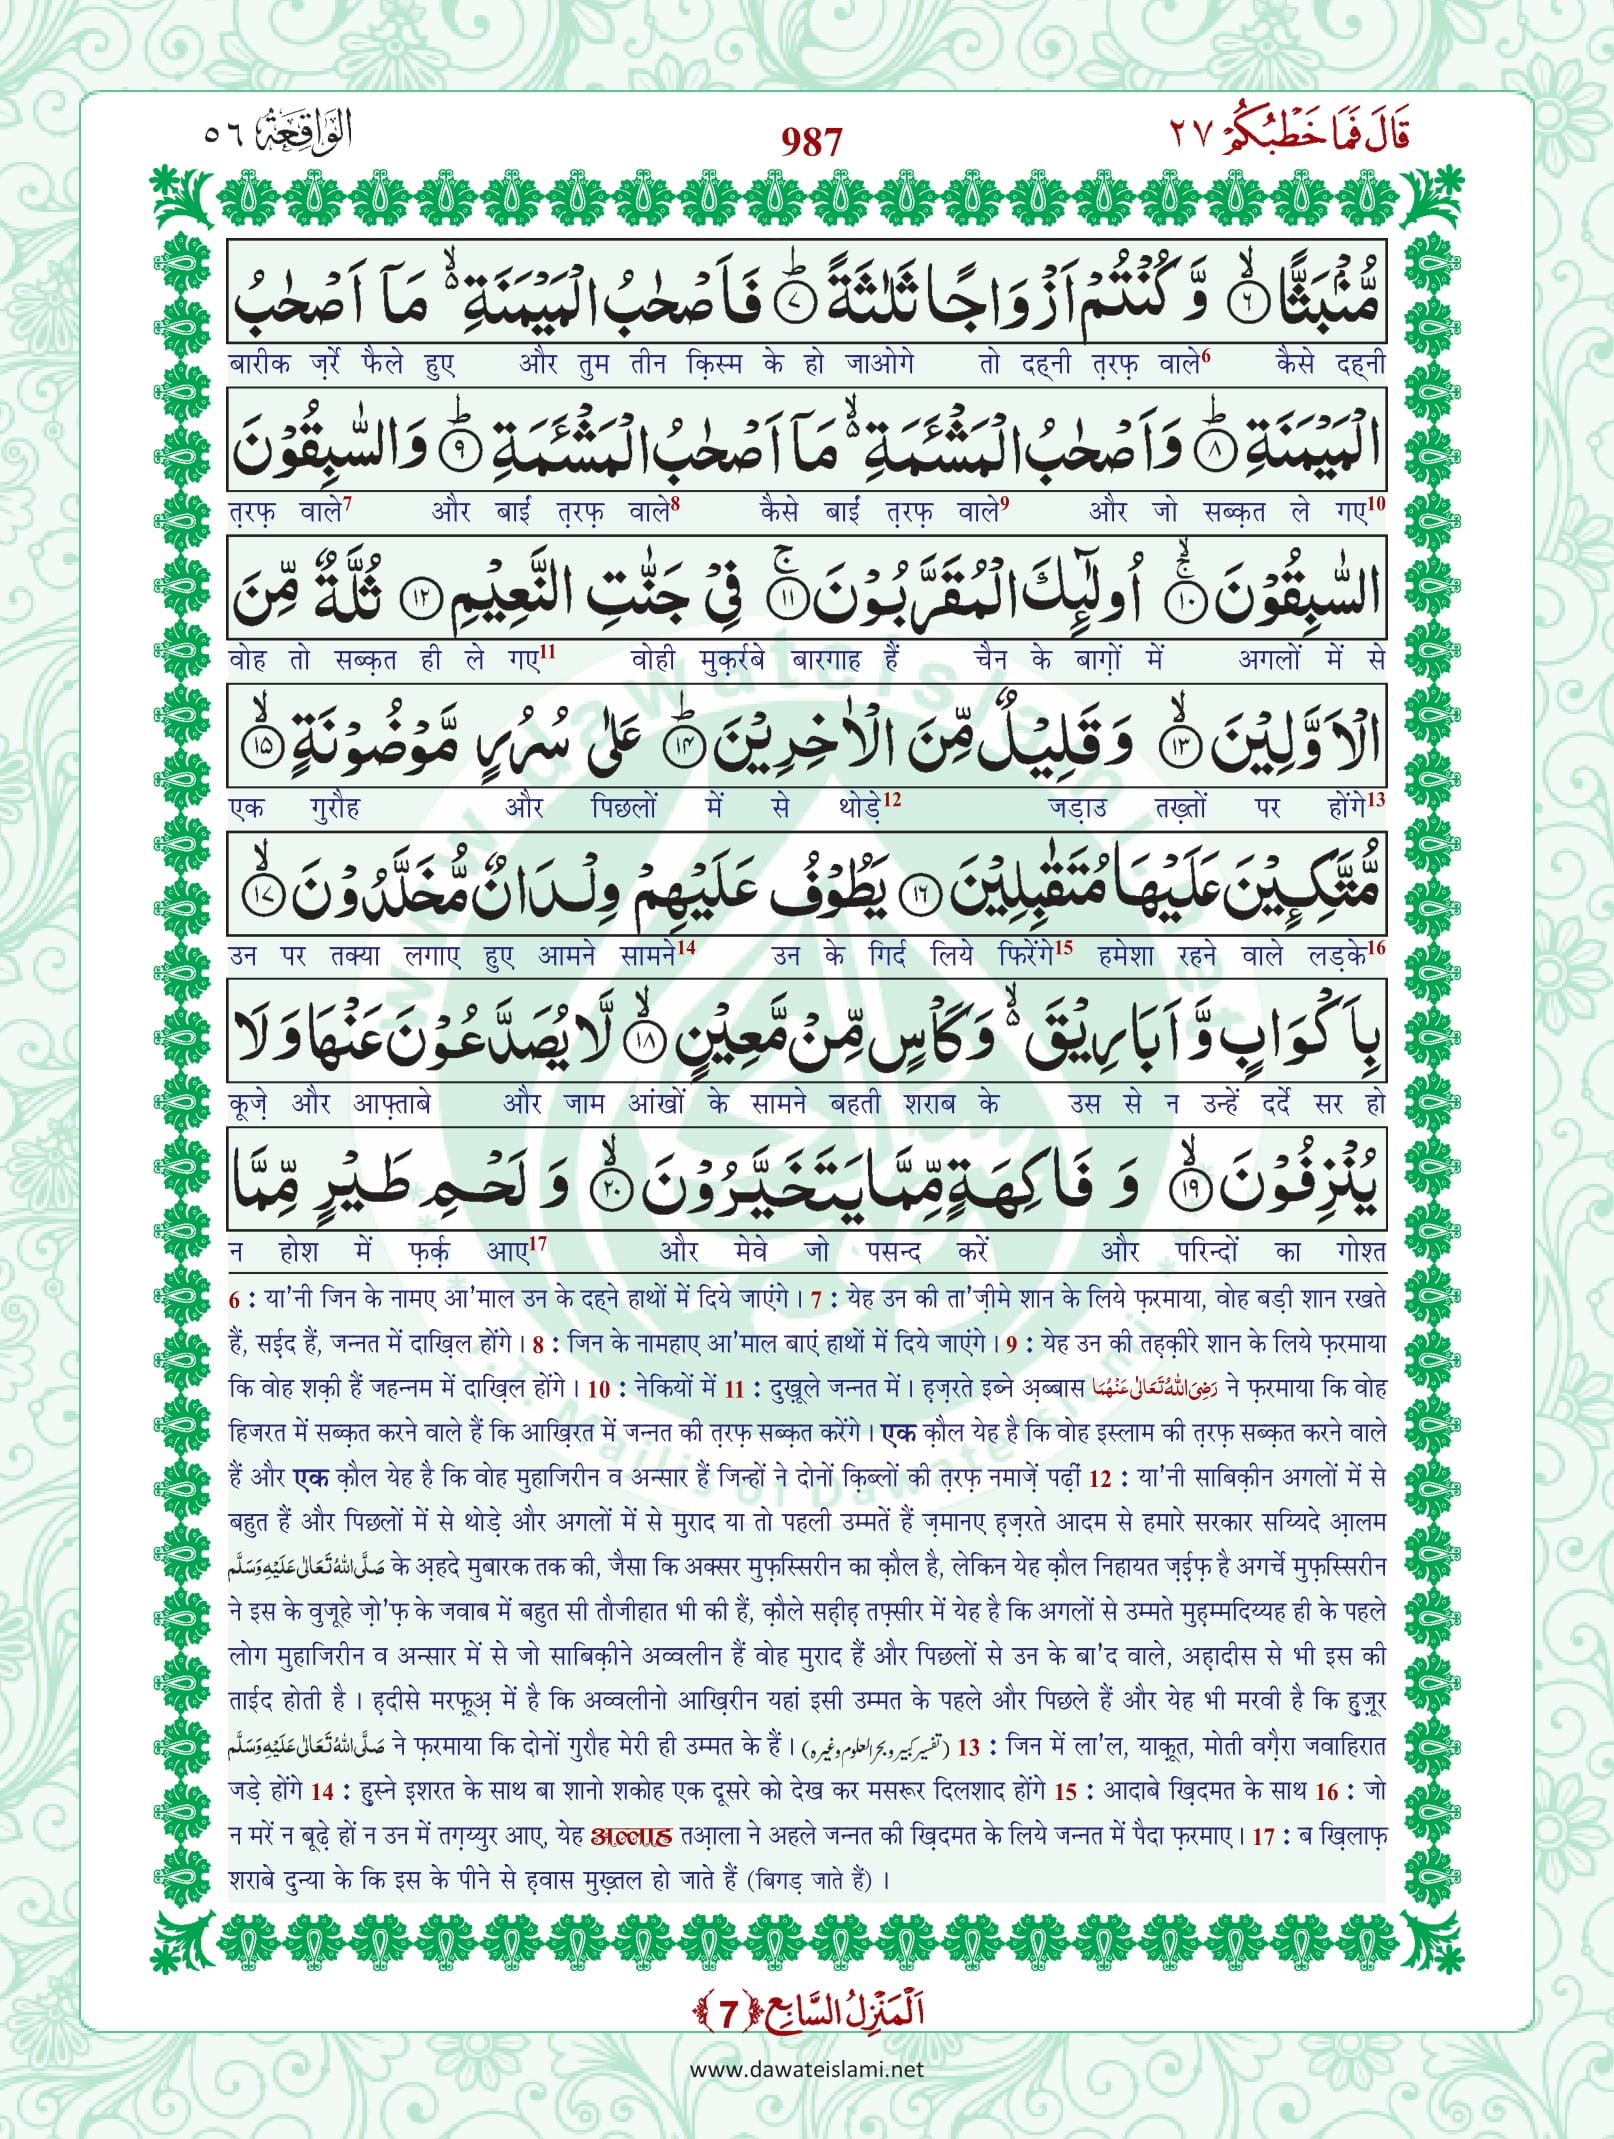 الواقعة ٥٦
987
قَالَ فَمَا خَطْبُكُمْ ٢٧
مُّنْۢبَثًّا ۙ۶ وَّ كُنْتُمْ اَزْوَاجًا ثَلٰثَةً ؕ۷ فَاَصْحٰبُ الْمَیْمَنَةِ ۙ۬ مَاۤ اَصْحٰبُ
बारीक ज़र्रे फैले हुए और तुम तीन क़िस्म के हो जाओगे तो दह्नी त़रफ़ वाले6 कैसे दह्नी
الْمَیْمَنَةِ ؕ۸ وَ اَصْحٰبُ الْمَشْـَٔمَةِ ۙ۬ مَاۤ اَصْحٰبُ الْمَشْـَٔمَةِ ؕ۹ وَ السّٰبِقُوْنَ
त़रफ़ वाले7 और बाईं त़रफ़ वाले8 कैसे बाईं त़रफ़ वाले9 और जो सब्क़त ले गए10
السّٰبِقُوْنَ ۚۙ۱۰ اُولٰٓىٕكَ الْمُقَرَّبُوْنَ ۚ۱۱ فِیْ جَنّٰتِ النَّعِیْمِ ۱۲ ثُلَّةٌ مِّنَ
वोह तो सब्क़त ही ले गए11 वोही मुक़र्रबे बारगाह हैं चैन के बाग़ों में अगलों में से
الْاَوَّلِیْنَ ۙ۱۳ وَ قَلِیْلٌ مِّنَ الْاٰخِرِیْنَ ؕ۱۴ عَلٰى سُرُرٍ مَّوْضُوْنَةٍ ۙ۱۵
एक गुरौह और पिछलों में से थोड़े12 जड़ाउ तख़्तों पर होंगे13
مُّتَّكِـٕیْنَ عَلَیْهَا مُتَقٰبِلِیْنَ ۱۶ یَطُوْفُ عَلَیْهِمْ وِلْدَانٌ مُّخَلَّدُوْنَ ۙ۱۷
उन पर तक्या लगाए हुए आमने सामने14 उन के गिर्द लिये फिरेंगे15 हमेशा रहने वाले लड़के16
بِاَكْوَابٍ وَّ اَبَارِیْقَ ۙ۬ وَ كَاْسٍ مِّنْ مَّعِیْنٍ ۙ۱۸ لَّا یُصَدَّعُوْنَ عَنْهَا وَ لَا
कूज़े और आफ़्ताबे और जाम आंखों के सामने बहती शराब के उस से न उन्हें दर्दे सर हो
یُنْزِفُوْنَ ۙ۱۹ وَ فَاكِهَةٍ مِّمَّا یَتَخَیَّرُوْنَ ۙ۲۰ وَ لَحْمِ طَیْرٍ مِّمَّا
न होश में फ़र्क़ आए17 और मेवे जो पसन्द करें और परिन्दों का गोश्त
6 : या'नी जिन के नामए आ'माल उन के दह्ने हाथों में दिये जाएंगे । 7 : येह उन की ता'ज़ीमे शान के लिये फ़रमाया, वोह बड़ी शान रखते
हैं, सई़द हैं, जन्नत में दाख़िल होंगे । 8 : जिन के नामहाए आ'माल बाएं हाथों में दिये जाएंगे । 9 : येह उन की तह़क़ीरे शान के लिये फ़रमाया
कि वोह शक़ी हैं जहन्नम में दाख़िल होंगे । 10 : नेकियों में 11 : दुख़ूले जन्नत में । ह़ज़रते इब्ने अ़ब्बास رَضِیَ اللّٰهُ تَعَالٰی عَنْهُمَا ने फ़रमाया कि वोह
हिजरत में सब्क़त करने वाले हैं कि आख़िरत में जन्नत की त़रफ़ सब्क़त करेंगे । एक क़ौल येह है कि वोह इस्लाम की त़रफ़ सब्क़त करने वाले
हैं और एक क़ौल येह है कि वोह मुहाजिरीन व अन्सार हैं जिन्हों ने दोनों क़िब्लों की त़रफ़ नमाज़ें पढ़ीं 12 : या'नी साबिक़ीन अगलों में से
बहुत हैं और पिछलों में से थोड़े और अगलों में से मुराद या तो पहली उम्मतें हैं ज़मानए ह़ज़रते आदम से हमारे सरकार सय्यिदे आ़लम
صَلَّی اللّٰهُ تَعَالٰی عَلَیْهِ وَسَلَّم के अ़हदे मुबारक तक की, जैसा कि अक्सर मुफ़स्सिरीन का क़ौल है, लेकिन येह क़ौल निहायत ज़ई़फ़ है अगर्चे मुफ़स्सिरीन
ने इस के वुजूहे ज़ो'फ़ के जवाब में बहुत सी तौजीहात भी की हैं, क़ौले सह़ीह़ तफ़्सीर में येह है कि अगलों से उम्मते मुह़म्मदिय्यह ही के पहले
लोग मुहाजिरीन व अन्सार में से जो साबिक़ीने अव्वलीन हैं वोह मुराद हैं और पिछलों से उन के बा'द वाले, अह़ादीस से भी इस की
ताईद होती है । ह़दीसे मरफ़ूअ़ में है कि अव्वलीनो आख़िरीन यहां इसी उम्मत के पहले और पिछले हैं और येह भी मरवी है कि हु़ज़ूर
صَلَّی اللّٰهُ تَعَالٰی عَلَیْهِ وَسَلَّم ने फ़रमाया कि दोनों गुरौह मेरी ही उम्मत के हैं । (تفسیر کبیر و بحر العلوم وغیرہ) 13 : जिन में ला'ल, याक़ूत, मोती वग़ैरा जवाहिरात
जड़े होंगे 14 : हु़स्ने इ़शरत के साथ बा शानो शकोह एक दूसरे को देख कर मसरूर दिलशाद होंगे 15 : आदाबे ख़िदमत के साथ 16 : जो
न मरें न बूढ़े हों न उन में तग़य्युर आए, येह अल्लाह तआ़ला ने अहले जन्नत की ख़िदमत के लिये जन्नत में पैदा फ़रमाए । 17 : ब ख़िलाफ़
शराबे दुन्या के कि इस के पीने से ह़वास मुख़्तल हो जाते हैं (बिगड़ जाते हैं) ।
اَلْمَنْزِلُ السَّابِع ﴿7﴾
www.dawateislami.net